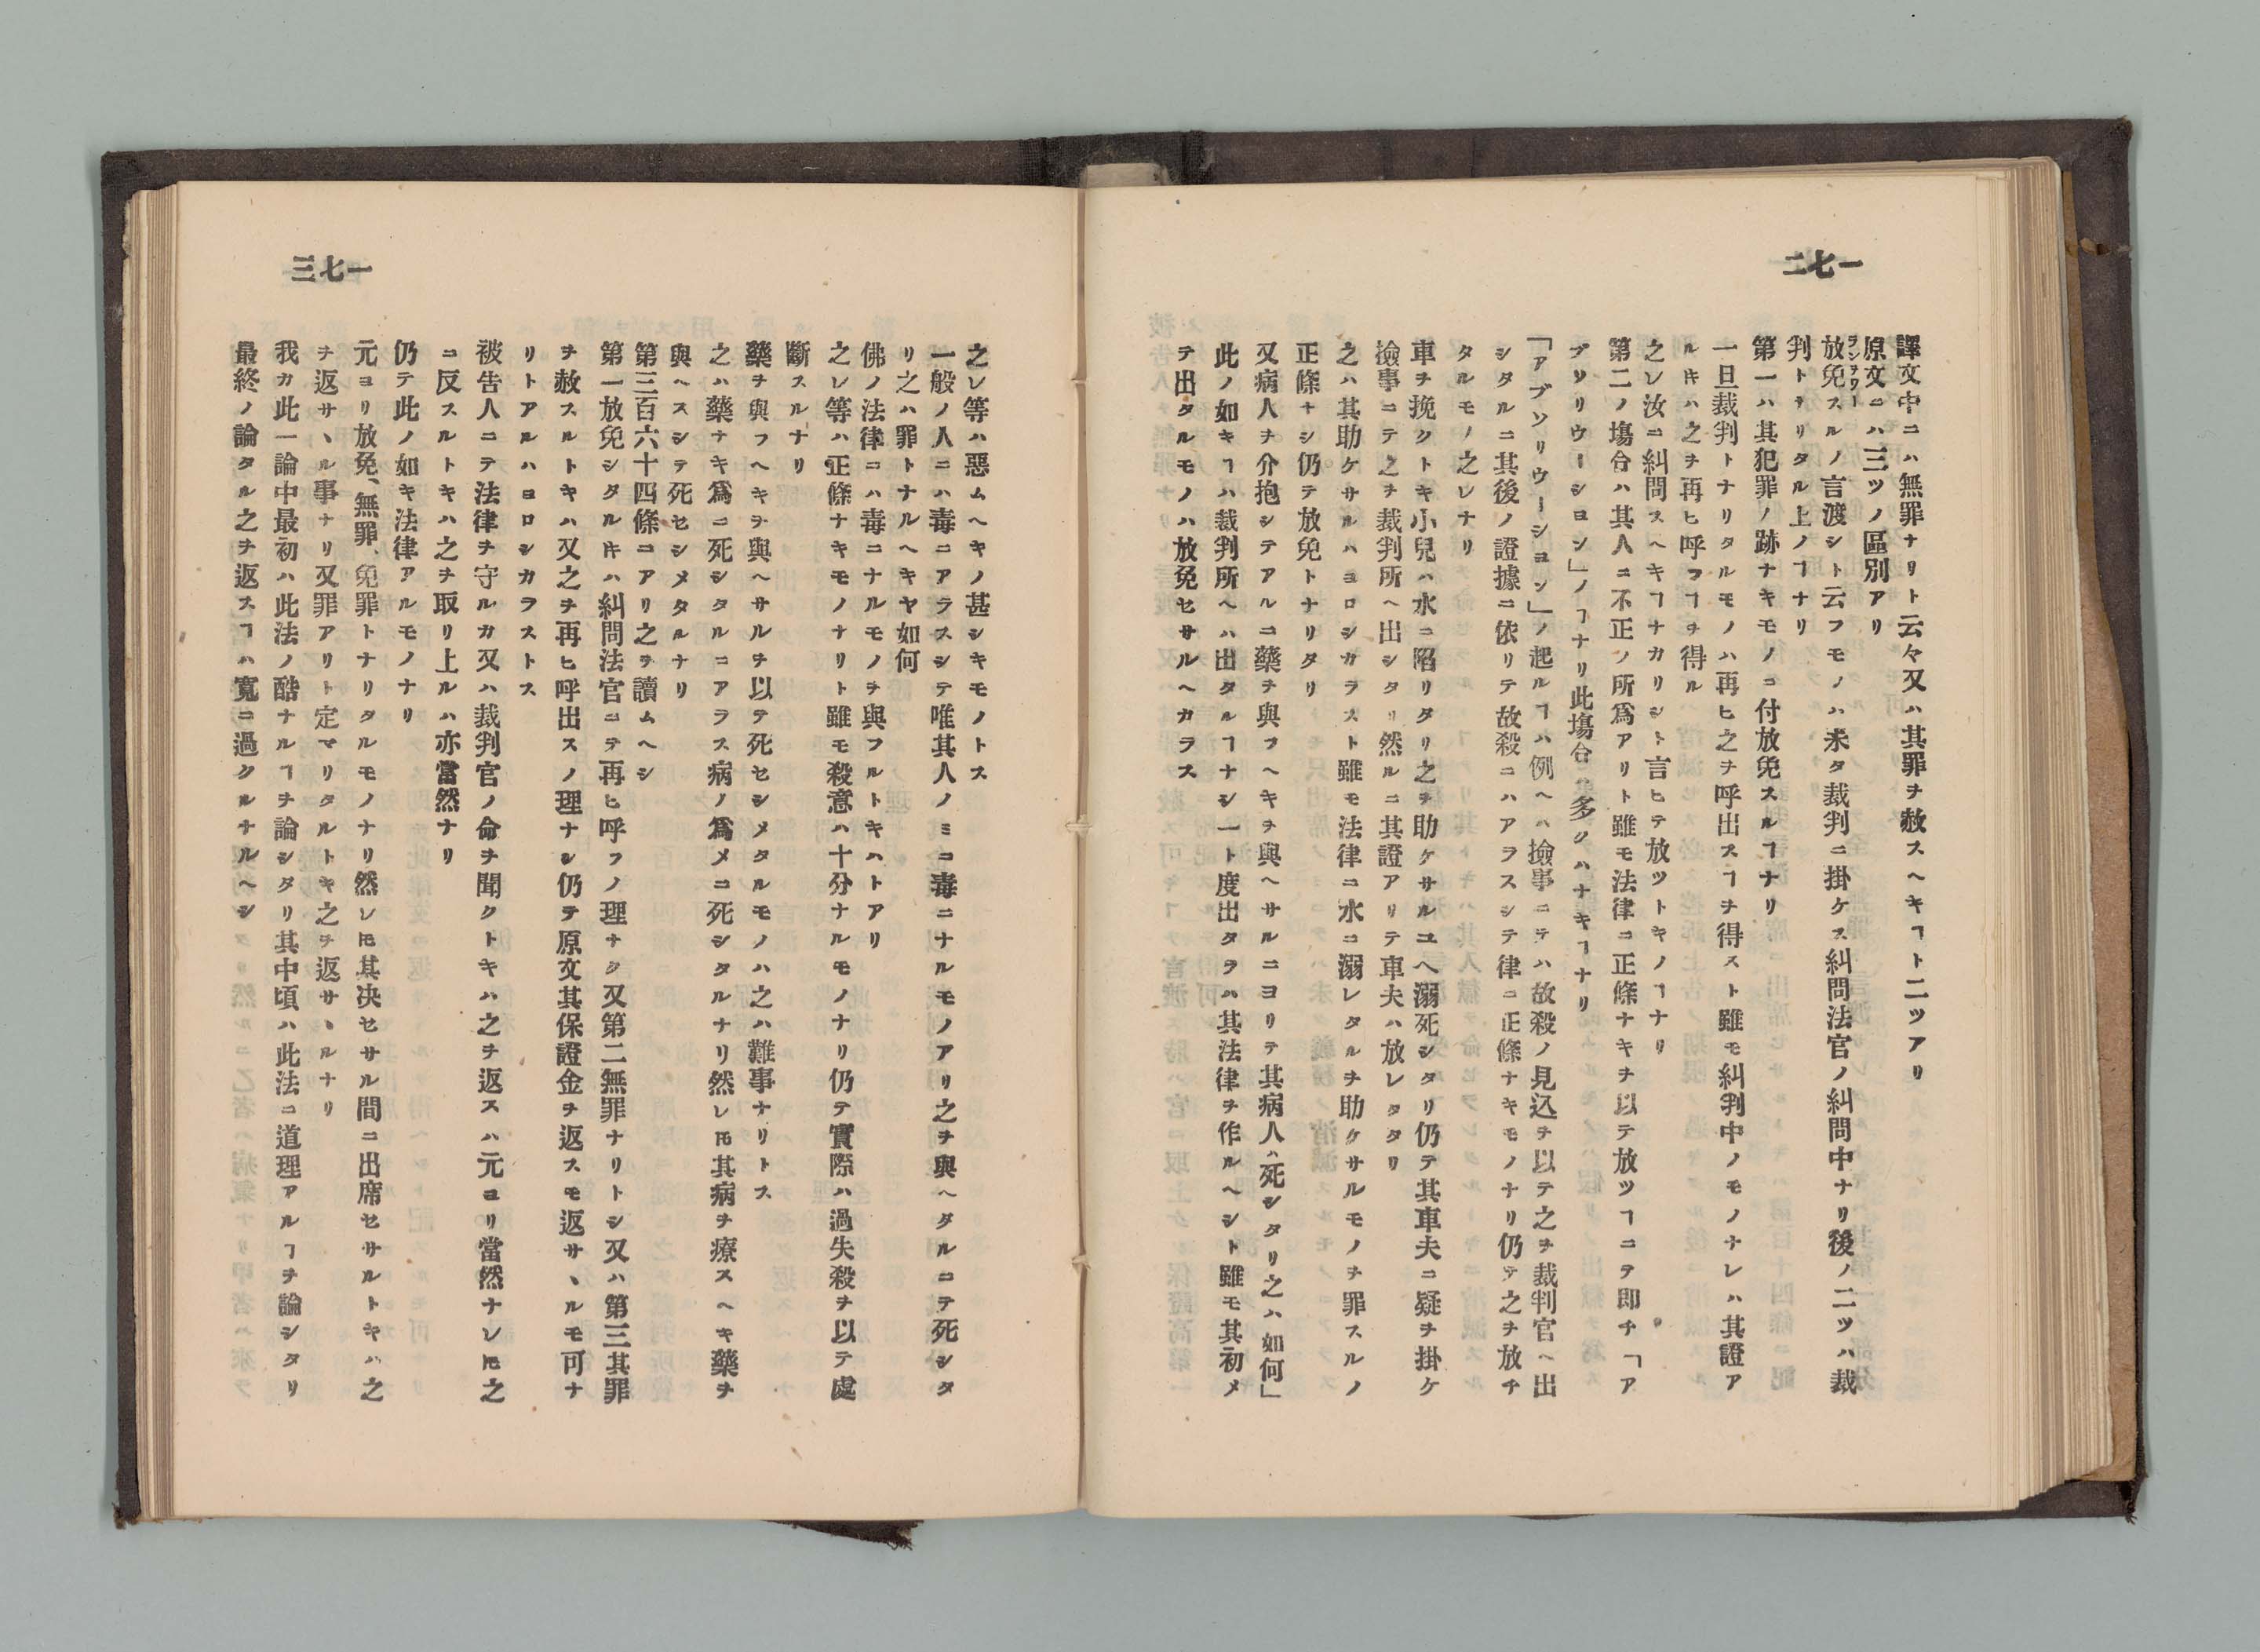 一七二
譯文中ニハ無罪ナリト云々又ハ其罪ヲ赦スヘキヿト二ツアリ
原文ニハ三ツノ區別アリ
放免スルノ言渡シト云フモノハ未タ裁判ニ掛ケス糾問法官ノ糾問中ナリ後ノ二ツハ裁
判トナリタル上ノヿナリ
第一ハ其犯罪ノ跡ナキモノニ付放免スルヿナリ
一旦裁判トナリタルモノハ再ヒ之ヲ呼出スヿヲ得スト雖モ糾判中ノモノナレハ其證ア
ルキハ之ヲ再ヒ呼フヿヲ得ル
之レ汝ニ糾問スヘキヿナカリシト言ヒテ放ツトキノヿナリ
第二ノ塲合ハ其人ニ不正ノ所爲アリト雖モ法律ニ正條ナキヲ以テ放ツヿニテ即チ「ア
ブソリウーシヨン」ノヿナリ此塲合ハ多クハナキヿナリ
「アブソリウーシヨン」ノ起ルヿハ例ヘハ撿事ニテハ故殺ノ見込ヲ以テ之ヲ裁判官ヘ出
シタルニ其後ノ證據ニ依リテ故殺ニハアラスシテ律ニ正條ナキモノナリ仍テ之ヲ放チ
タルモノ之レナリ
車ヲ挽クトキ小兒ハ水ニ陷リタリ之ヲ助ケサルユヘ溺死シタリ仍テ其車夫ニ疑ヲ掛ケ
撿事ニテ之ヲ裁判所ヘ出シタリ然ルニ其證アリテ車夫ハ放レタリ
之ハ其助ケサルハヨロシカラスト雖モ法律ニ水ニ溺レタルヲ助ケサルモノヲ罪スルノ
正條ナシ仍テ放免トナリタリ
又病人ヲ介抱シテアルニ藥ヲ與フヘキヲ與ヘサルニヨリテ其病人ハ死シタリ之ハ如何」
此ノ如キヿハ裁判所ヘハ出タルヿナシ一ト度出タラハ其法律ヲ作ルヘシト雖モ其初メ
テ出タルモノハ放免セサルヘカラス
一七三
之レ等ハ惡ムヘキノ甚シキモノトス
一般ノ人ニハ毒ニアラスシテ唯其人ノミニ毒ニナルモノアリ之ヲ與ヘタルニテ死シタ
リ之ハ罪トナルヘキヤ如何
佛ノ法律ニハ毒ニナルモノヲ與フルトキハトアリ
之レ等ハ正條ナキモノナリト雖モ殺意ハ十分ナルモノナリ仍テ實際ハ過失殺ヲ以テ處
斷スルナリ
藥ヲ與フヘキヲ與ヘサルヲ以テ死セシメタルモノハ之ハ難事ナリトス
之ハ藥ナキ爲ニ死シタルニアラス病ノ爲メニ死シタルナリ然レ𪜈其病ヲ療スヘキ藥ヲ
與ヘスシテ死セシメタルナリ
第三百六十四條ニアリ之ヲ讀ムヘシ
第一放免シタルキハ糾問法官ニテ再ヒ呼フノ理ナク又第二無罪ナリトシ又ハ第三其罪
ヲ赦スルトキハ又之ヲ再ヒ呼出スノ理ナシ仍テ原文其保證金ヲ返スモ返サヽルモ可ナ
リトアルハヨロシカラストス
被告人ニテ法律ヲ守ルカ又ハ裁判官ノ命ヲ聞クトキハ之ヲ返スハ元ヨリ當然ナレ𪜈之
ニ反スルトキハ之ヲ取リ上ルハ亦當然ナリ
仍テ此ノ如キ法律アルモノナリ
元ヨリ放免、無罪、免罪トナリタルモノナリ然レ𪜈其决セサル間ニ出席セサルトキハ之
ヲ返サヽル事ナリ又罪アリト定マリタルトキ之ヲ返サヽルナリ
我カ此一論中最初ハ此法ノ酷ナルヿヲ論シタリ其中頃ハ此法ニ道理アルヿヲ論シタリ
最終ノ論タル之ヲ返スヿハ寛ニ過クルナルヘシ